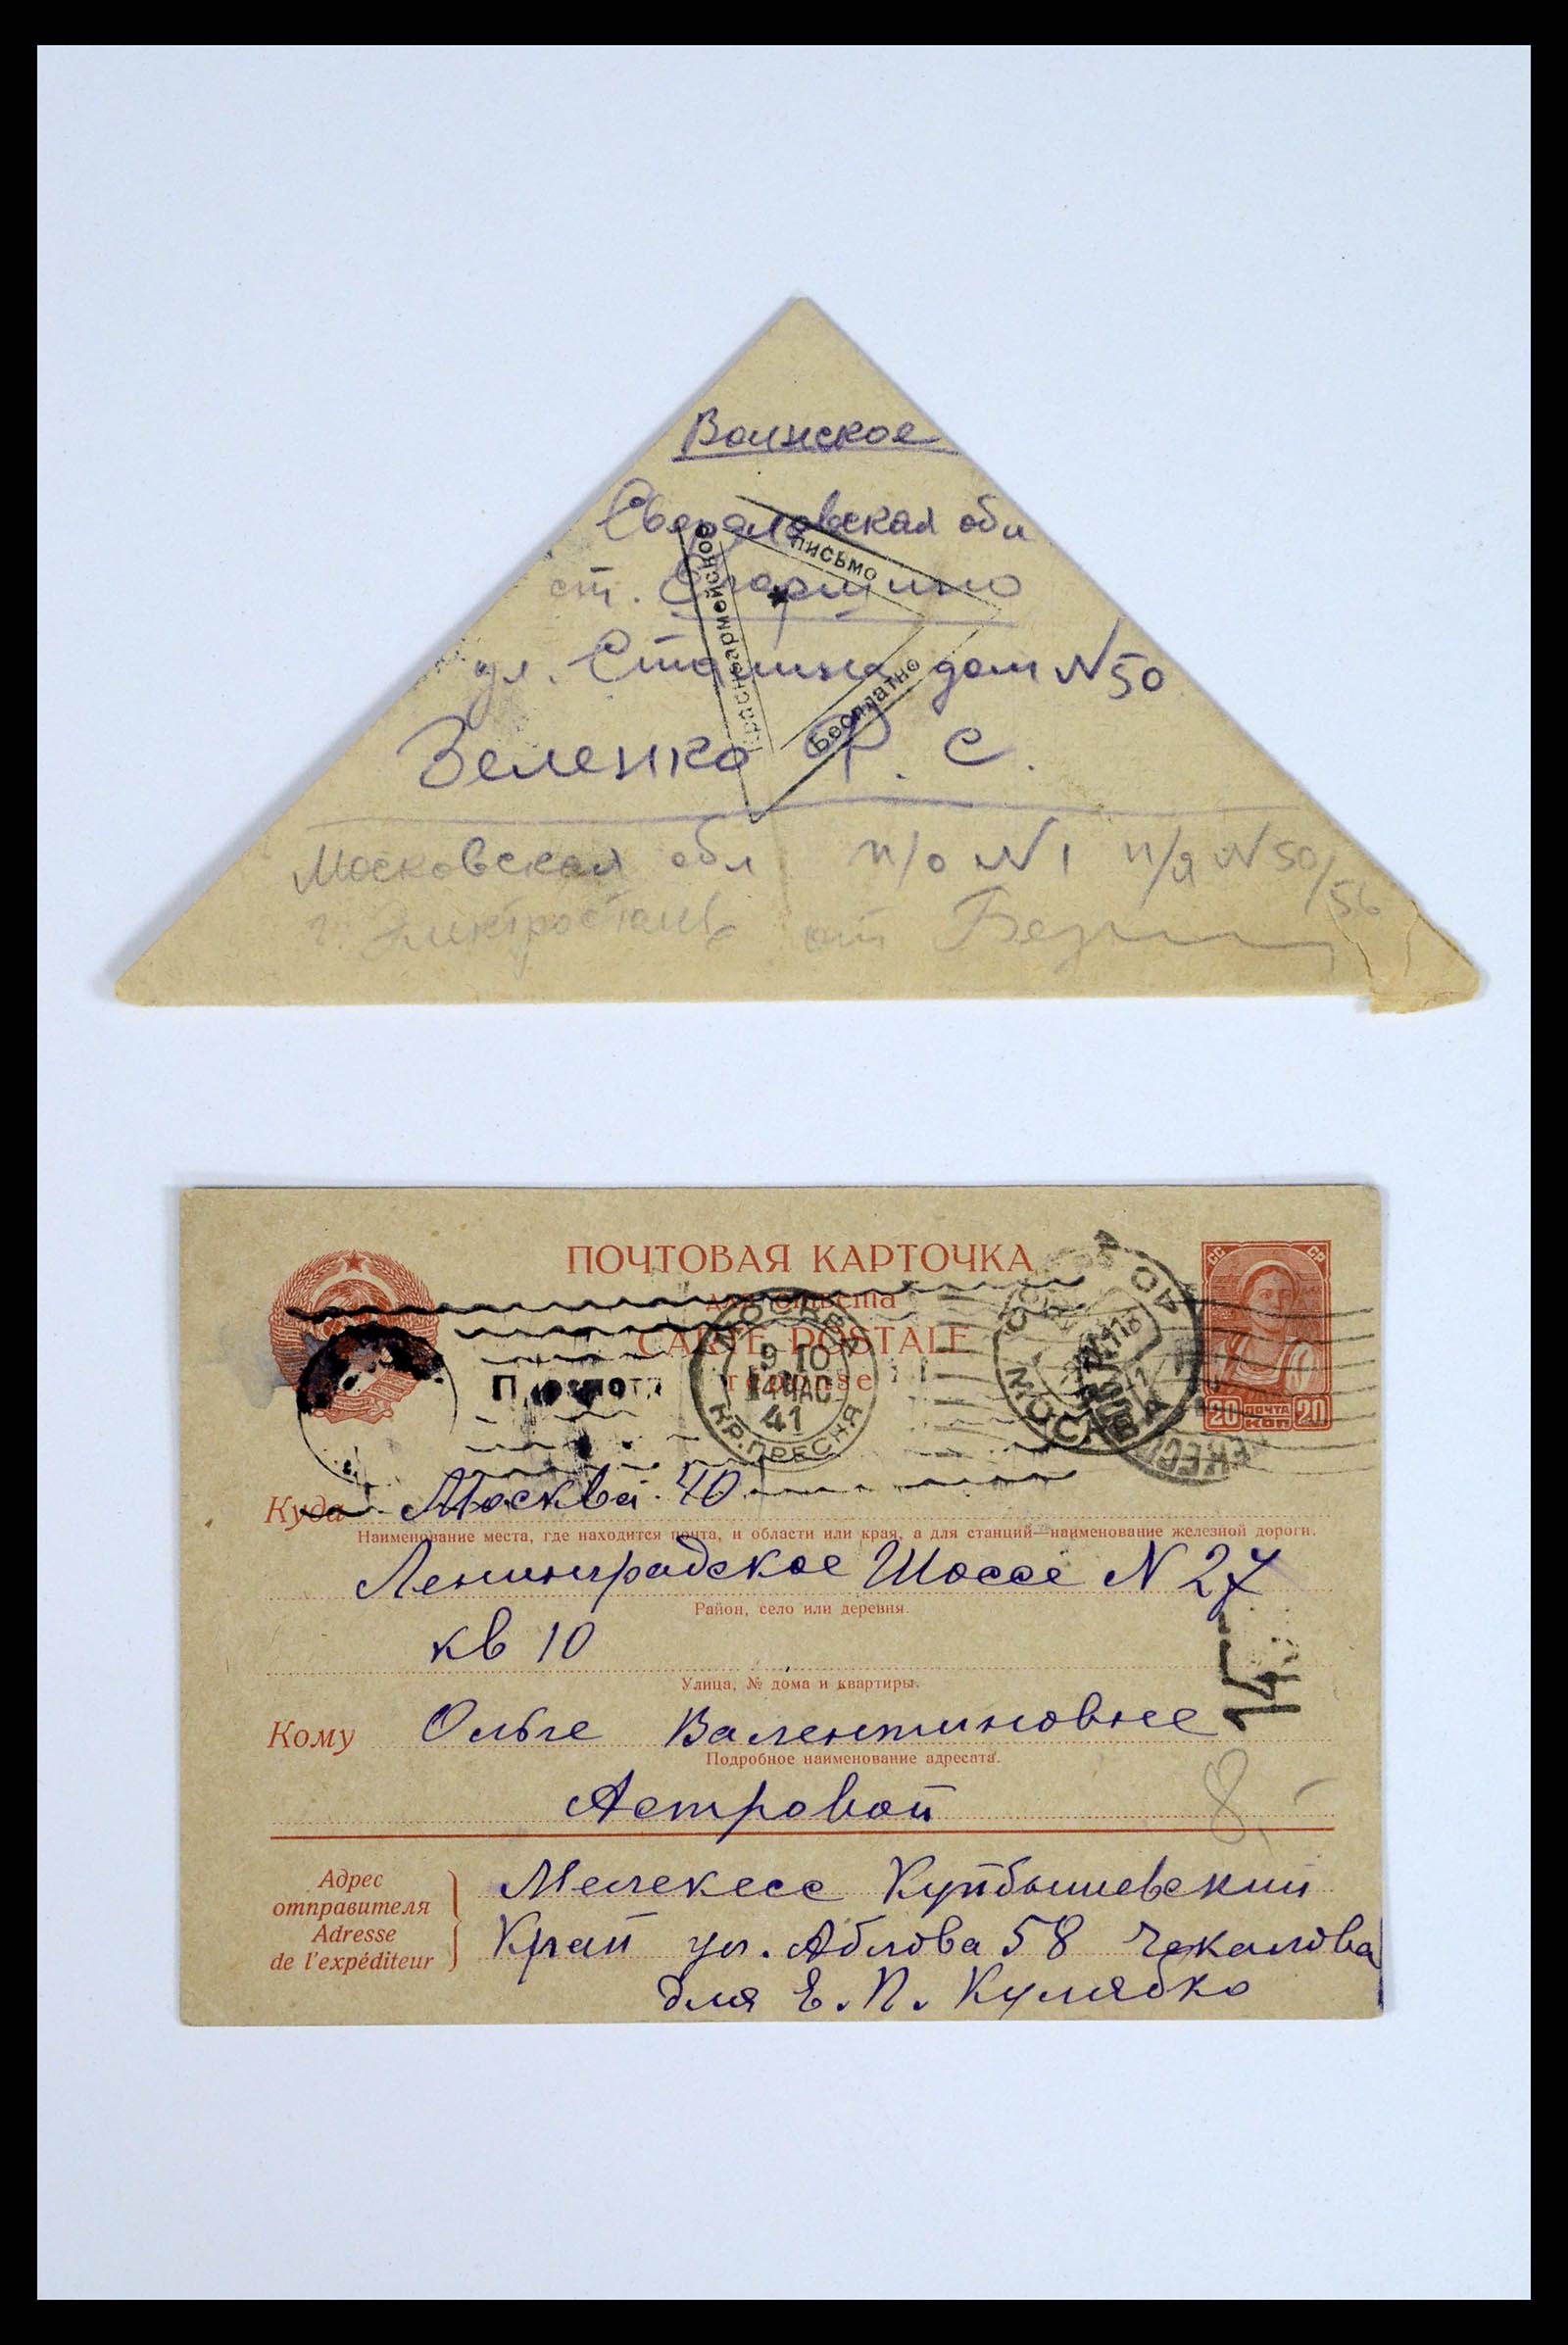 Воинское
Свердловская обл
ст.
ул. Сталина дом N 50
Зеленко Р. С.
Красноармейское
письмо
Бесплатно
Московская обл п/о N 1 п/я N 50/56
г. Электросталь от
ПОЧТОВАЯ КАРТОЧКА
для ответа
CARTE POSTALE
réponse
СС СР
20 ПОЧТА КОП 20
МОСКВА
9 10
14 ЧАС
41
КР. ПРЕСНЯ
МОСКВА
Куда Москва 40
Наименование места, где находится почта, и области или края, а для станций—наименование железной дороги.
Ленинградское Шоссе N 27
Район, село или деревня.
кв 10
Улица, № дома и квартиры.
Кому Ольге Валентиновне
Подробное наименование адресата.
Астровой
14
8
Адрес
отправителя
Adresse
de l'expéditeur
Мелекесс Куйбышевский
Край ул. Аблова 58 Чекалова
для Е. П. Кулябко